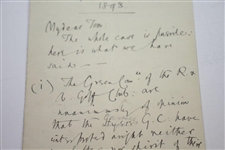 1898
My dear Tom.
The whole case is
here is what we have
said —
(1) The Green Com^ee of the R &
A Golf Club are
unanimously of opinion
that the G.C. have
interpreted neither
the spirit of the